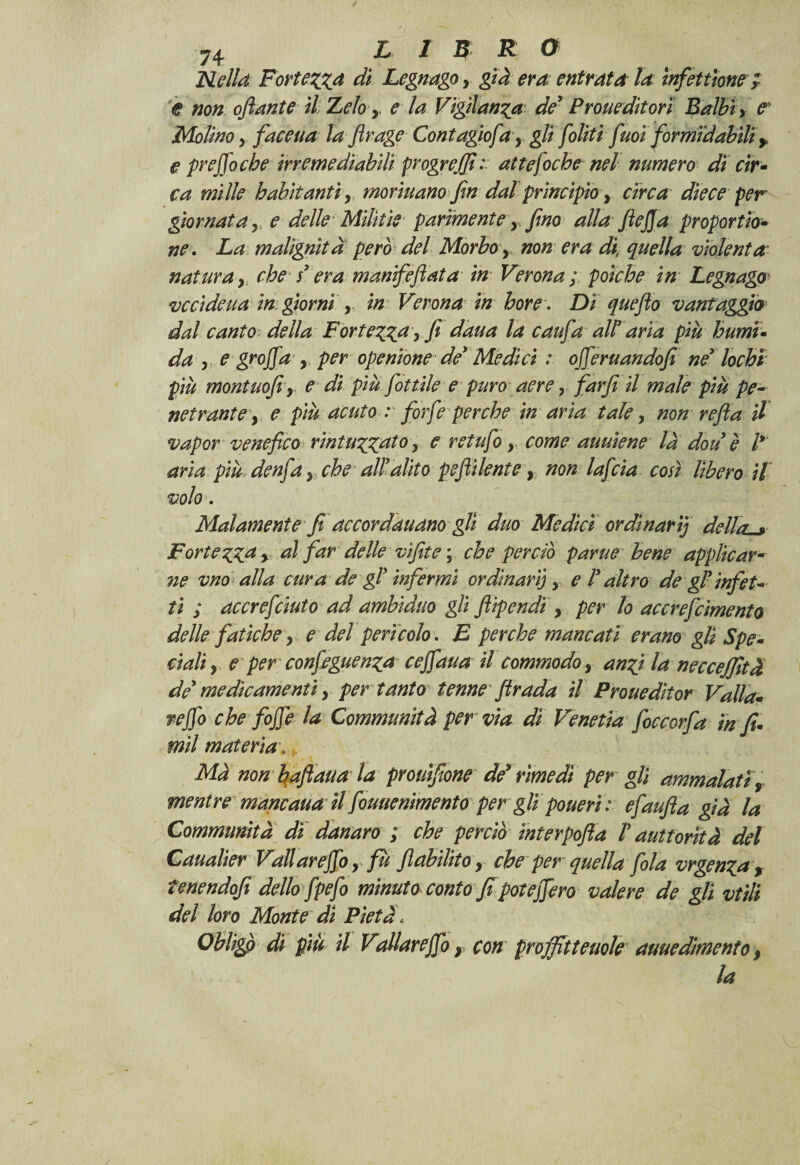 74 LIBRO
Nella Fortezza di Legnago, già era entrata la infettione;
e non oſtante il Zelo, e la Vigilanza de' Proueditori Balbi, e
Molino, faceua la ſtrage Contagioſa, gli ſoliti ſuoi formidabili,
e preſſoche irremediabili progreſſi: atteſoche nel numero di cir-
ca mille habitanti, moriuano ſin dal principio, circa diece per
giornata, e delle Militie parimente, ſino alla ſteſſa proportio-
ne. La malignità però del Morbo, non era di quella violenta
natura, che s'era manifeſtata in Verona; poiche in Legnago
vccideua in giorni, in Verona in hore. Di queſto vantaggio
dal canto della Fortezza, ſi daua la cauſa all'aria più humi-
da, e groſſa, per openione de' Medici: oſſeruandoſi ne' lochi
più montuoſi, e di più ſottile e puro aere, farſi il male più pe-
netrante, e più acuto: forſe perche in aria tale, non reſta il
vapor venefico rintuzzato, e retuſo, come auuiene là dou'è l'
aria più denſa, che all'alito peſtilente, non laſcia così libero il
volo.
Malamente ſi accordauano gli duo Medici ordinarij della
Fortezza, al far delle viſite; che perciò parue bene applicar-
ne vno alla cura de gl'infermi ordinarij, e l'altro de gl'infet-
ti; accreſciuto ad ambiduo gli ſtipendi, per lo accreſcimento
delle fatiche, e del pericolo. E perche mancati erano gli Spe-
ciali, e per conſeguenza ceſſaua il commodo, anzi la necceſſità
de' medicamenti, per tanto tenne ſtrada il Proueditor Valla-
reſſo che foſſe la Communità per via di Venetia ſoccorſa in ſi-
mil materia.
Mà non baſtaua la prouiſione de' rimedi per gli ammalati,
mentre mancaua il ſouuenimento per gli poueri: eſauſta già la
Communità di danaro; che perciò interpoſta l'auttorità del
Caualier Vallareſſo, fù ſtabilito, che per quella ſola vrgenza,
tenendoſi dello ſpeſo minuto conto ſi poteſſero valere de gli vtili
del loro Monte di Pietà.
Obligò di più il Vallareſſo, con proffitteuole auuedimento,
la